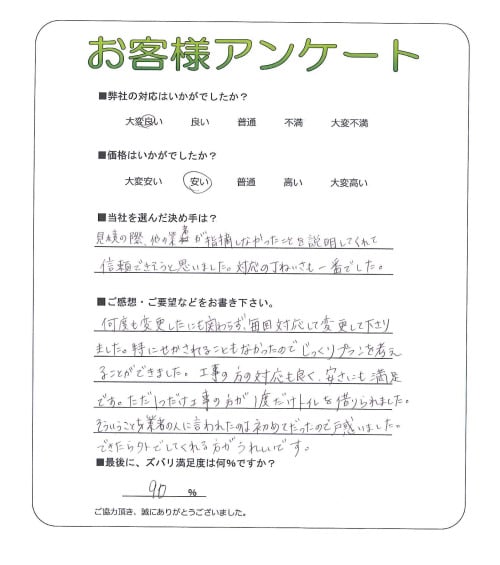 お客様アンケート
■弊社の対応はいかがでしたか?
大変良い 良い 普通 不満 大変不満
■価格はいかがでしたか?
大変安い 安い 普通 高い 大変高い
■当社を選んだ決め手は?
見積の際、他の業者が指摘しなかったことを説明してくれて
信頼できそうと思いました。対応の丁ねいさも一番でした。
■ご感想・ご要望などをお書き下さい。
何度も変更したにも関わらず、毎回対応して変更して下さり
ました。特にせかされることもなかったのでじっくりプランを考え
ることができました。工事の方の対応も良く、安さにも満足
です。ただ1つだけ工事の方が1度だけトイレを借りられました。
そういうことを業者の人に言われたのは初めてだったので戸惑いました。
できたら外でしてくれる方がうれしいです。
■最後に、ズバリ満足度は何%ですか?
90 %
ご協力頂き、誠にありがとうございました。